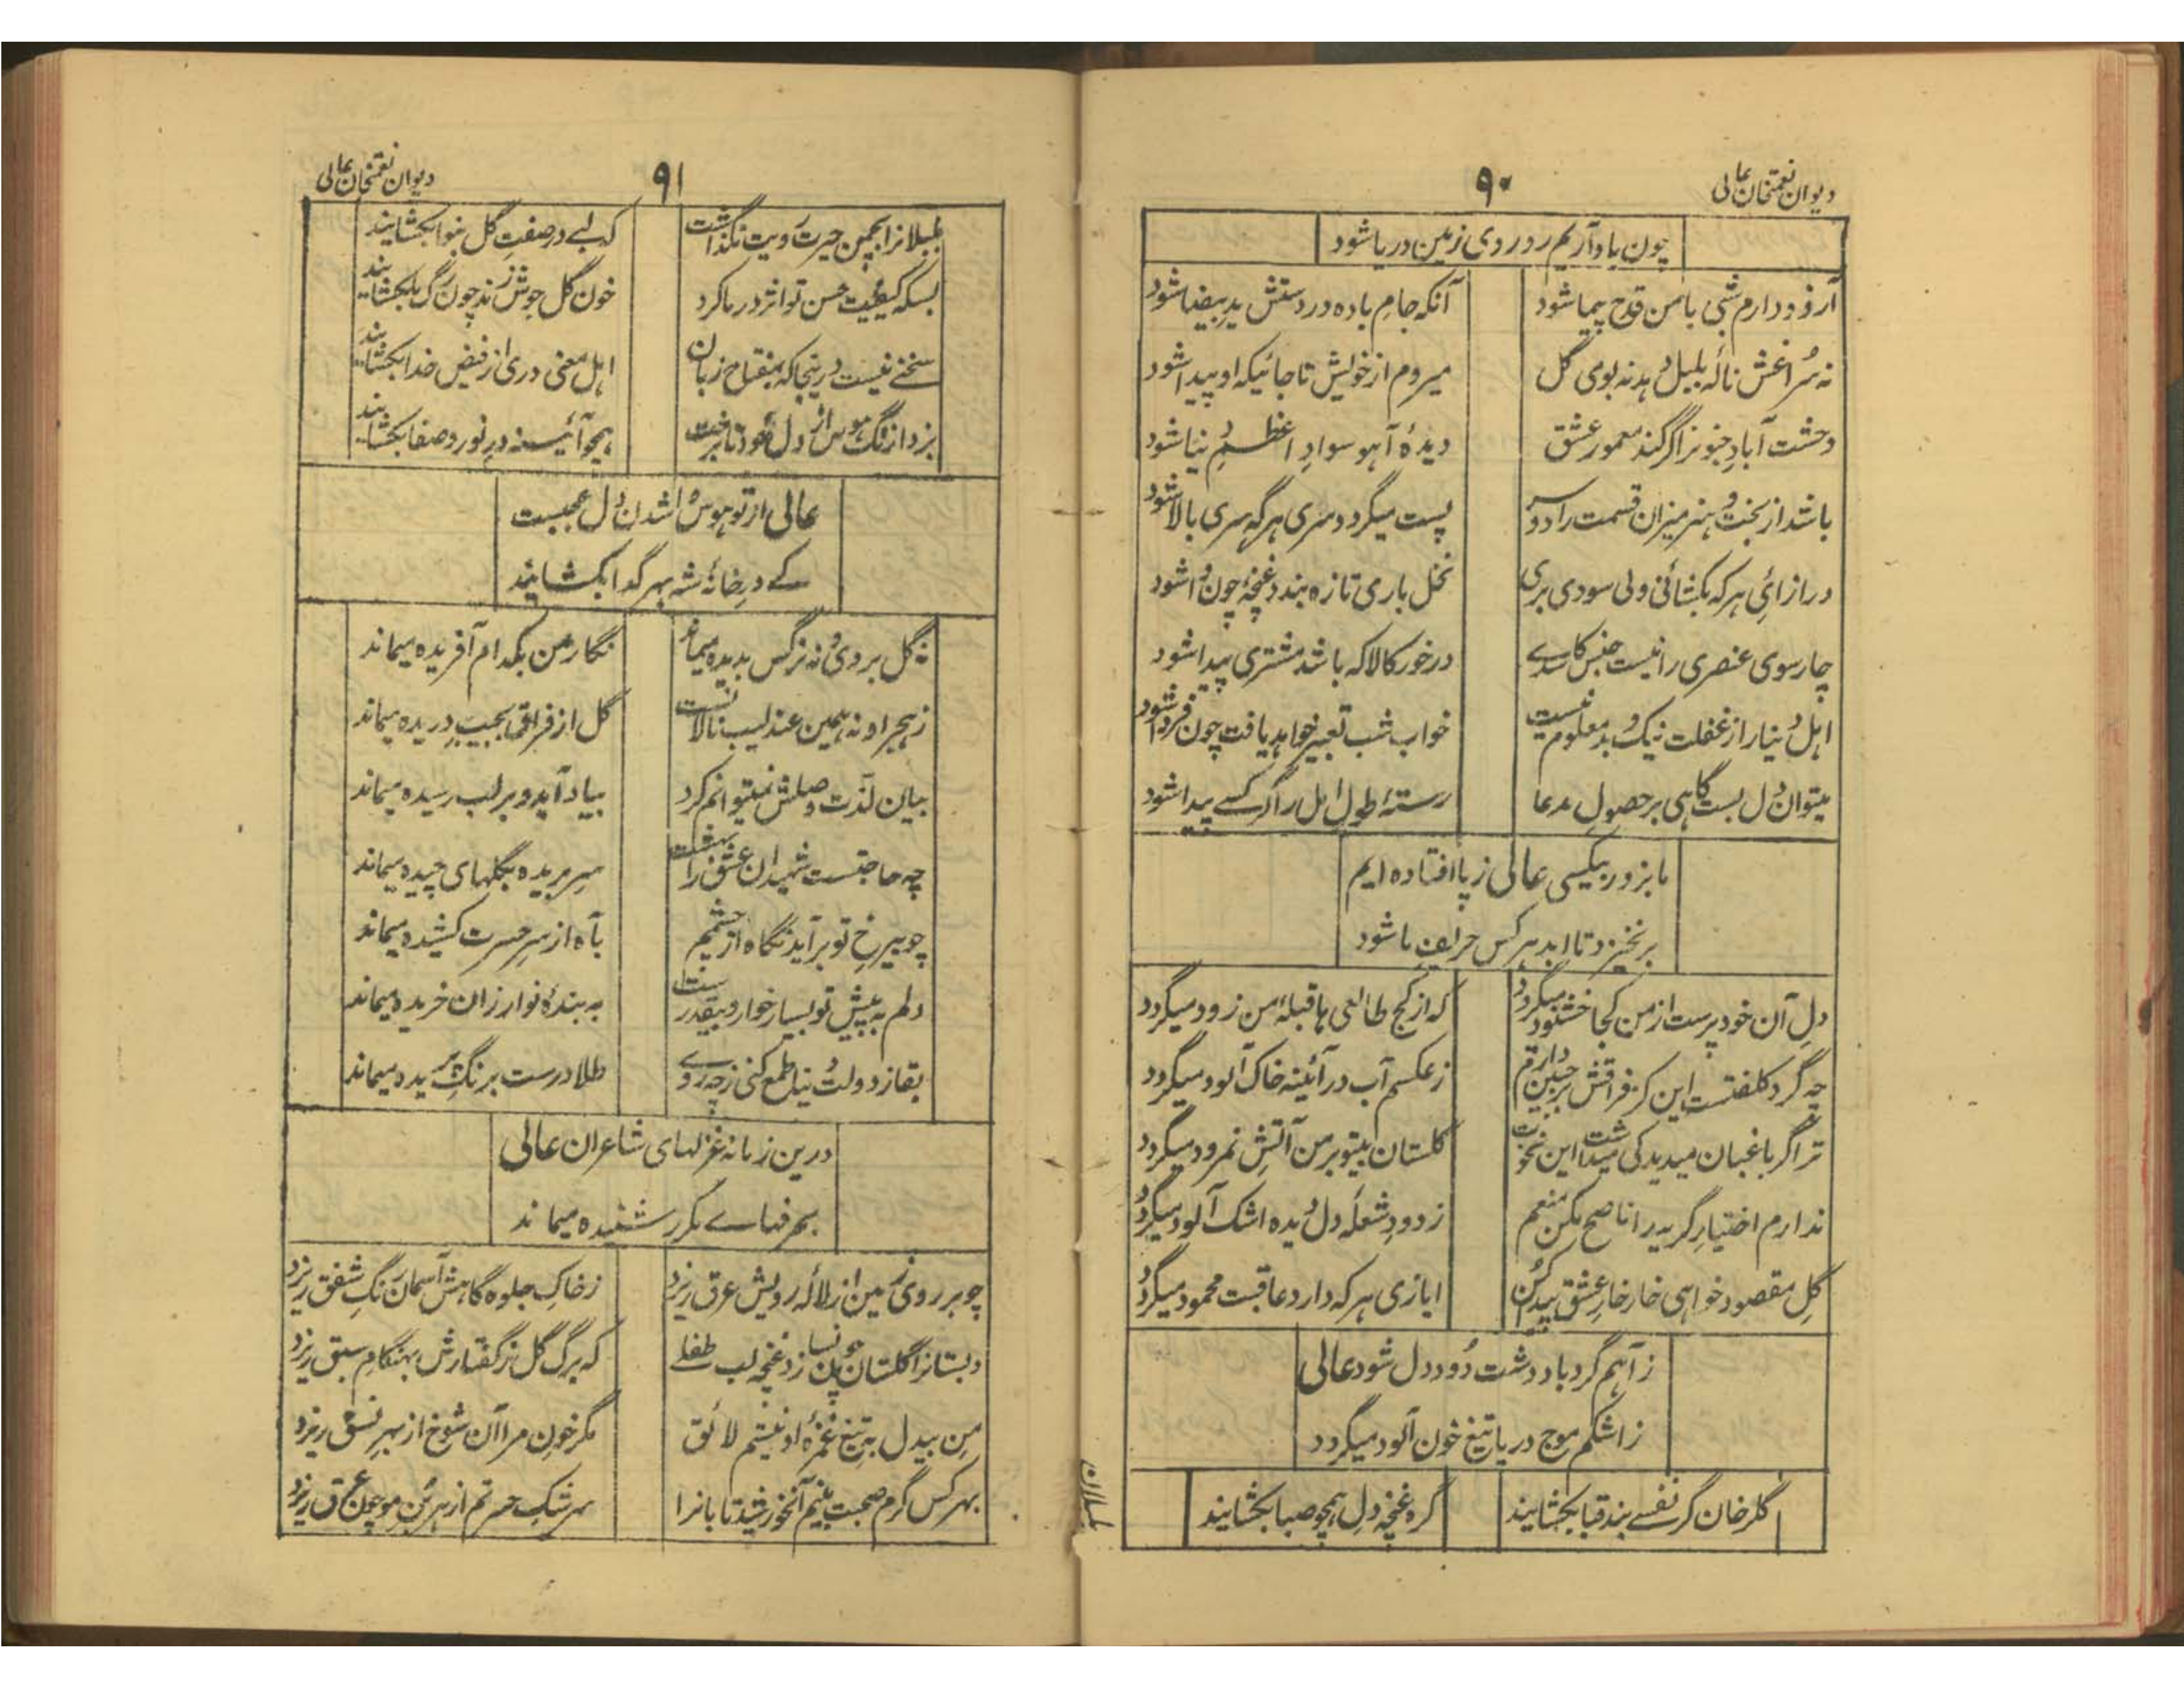 دیوان نعمتخان عالی
۹۰
چون یاد آریم رود روی زمین دریا شود
آرزو دارم شبی با من قدح پیما شود
آنکه جام باده در دستش ید بیضا شود
نه سراغش نالهٔ بلبل دهد نه بوی گل
میروم از خویش تا جائیکه او پیدا شود
وحشت آباد جنونرا گر کند معمور عشق
دیدهٔ آهو سواد اعظم دنیا شود
باشد از بخت و هنر میزان قسمت را دو سر
پست میگردد سری هرگه سری بالا شود
در ازائی هر که بکشائی ولی سودی بری
نخل باری تازه بندد غنچهٔ چون وا شود
چار سوی عنصری را نیست جنس کاسدے
در خور کالا که باشد مشتری پیدا شود
اهل دنیا را ز غفلت نیک و بد معلوم نیست
خواب شب تعبیر خواهد یافت چون فردا شود
میتوان دل بست گاهی بر حصول مدعا
رستهٔ طول امل را گر کسے پیدا شود
ما بزور بیکسی عالی ز پا افتاده ایم
بر نخیزد تا ابد هر کس حریف ما شود
دل آن خود پرست از من کجا خشنود میگردد
که از کج طالعی ها قبلهٔ من زود میگردد
چه گرد کلفتست این کز فراقش بر جبین دارم
ز عکسم آب در آئینه خاک آلود میگردد
ترا گر باغبان میدید کی میداشت این نخوت
گلستان بیتو بر من آتش نمرود میگردد
ندارم اختیار گریه را ناصح مکن منعم
ز دود شعلهٔ دل دیده اشک آلود میگردد
گل مقصود خواهی خار خار عشق پیدا کن
ایازی هر که دارد عاقبت محمود میگردد
ز آهم گردباد دشت دود دل شود عالی
ز اشکم موج دریا تیغ خون آلود میگردد
گلرخان گر نفسے بند قبا بکشایند
گره غنچهٔ دل همچو صبا بکشایند
بلبلان
دیوان نعمتخان عالی
۹۱
بلبلانرا بچمن حیرت رویت نگذاشت
که لبے در صفت گل بنوا بکشایند
بسکه کیفیت حسن تو اثر در ما کرد
خون گل جوش زند چون رگ ما بکشایند
سخنے نیست درینجا که بمفتاح زبان
اهل معنی دری از فیض خدا بکشایند
بزدا زنگ هوس از دل خود تا برخت
همچو آئینه در نور و صفا بکشایند
عالی از تو هوس وا شدن دل عجبست
کے در خانهٔ شه بهر گدا بکشایند
نه گل بروی و نه نرگس بدیده میماند
نگار من بکدام آفریده میماند
ز هجر او نه همین عندلیب نالانست
گل از فراق بجیب دریده میماند
بیان لذت وصلش نمیتوانم کرد
بیاد آید و بر لب رسیده میماند
چه حاجتست شهیدان عشق را بهشت
سر بریده بگلهای چیده میماند
چو بیرخ تو برآید نگاه از چشمم
بآه از سر حسرت کشیده میماند
دلم به پیش تو بسیار خوار و بیقدر ست
به بندهٔ نو ارزان خریده میماند
بقا ز دولت دنیا طمع کنی ز چه روے
طلا درست برنگ پریده میماند
درین زمانه غزلهای شاعران عالی
بحرفهاے مکرر شنیده میماند
چو بر روی زمین از لالهٔ رویش عرق ریزد
ز خاک جلوه گاهش آسمان رنگ شفق ریزد
دبستانرا گلستان چون نسازد غنچه لب طفلے
که برگ گل ز گفتارش بهنگام سبق ریزد
من بیدل به تیغ غمزهٔ او نیستم لائق
مگر خون مرا آن شوخ از بهر نسق ریزد
بهر کس گرم صحبت بینم آنخورشید تابانرا
سرشک حسرتم از هر بن مو چون عرق ریزد